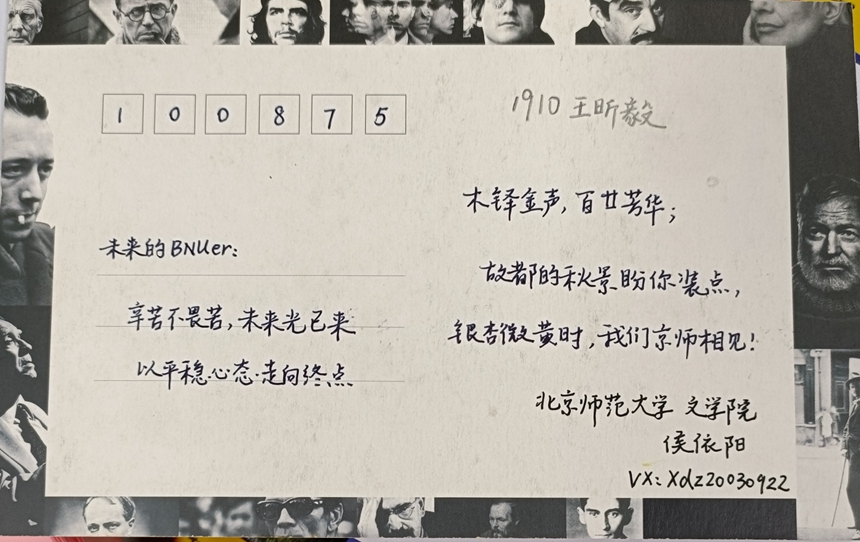 100875
1910 王昕毅
未来的BNUer:
辛苦不畏苦,未来光已来
以平稳心态走向终点
木铎金声,百廿芳华;
故都的秋景盼你装点,
银杏微黄时,我们京师相见!
北京师范大学 文学院
侯依阳
VX: Xdz20030922